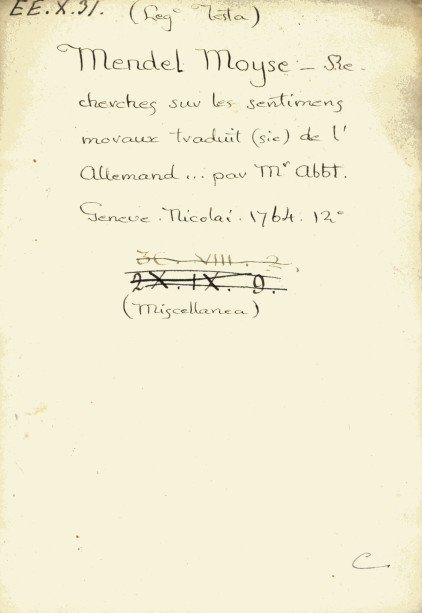 EE.X.31. (Leg° Testa)
Mendel Moyse – Re-
cherches sur les sentimens
moraux traduit (sic) de l'
Allemand... par Mr Abbt.
Geneve. Nicolai. 1764. 12°
VIII. 2.
2X.IX. 9.
(Miscellanea)
C